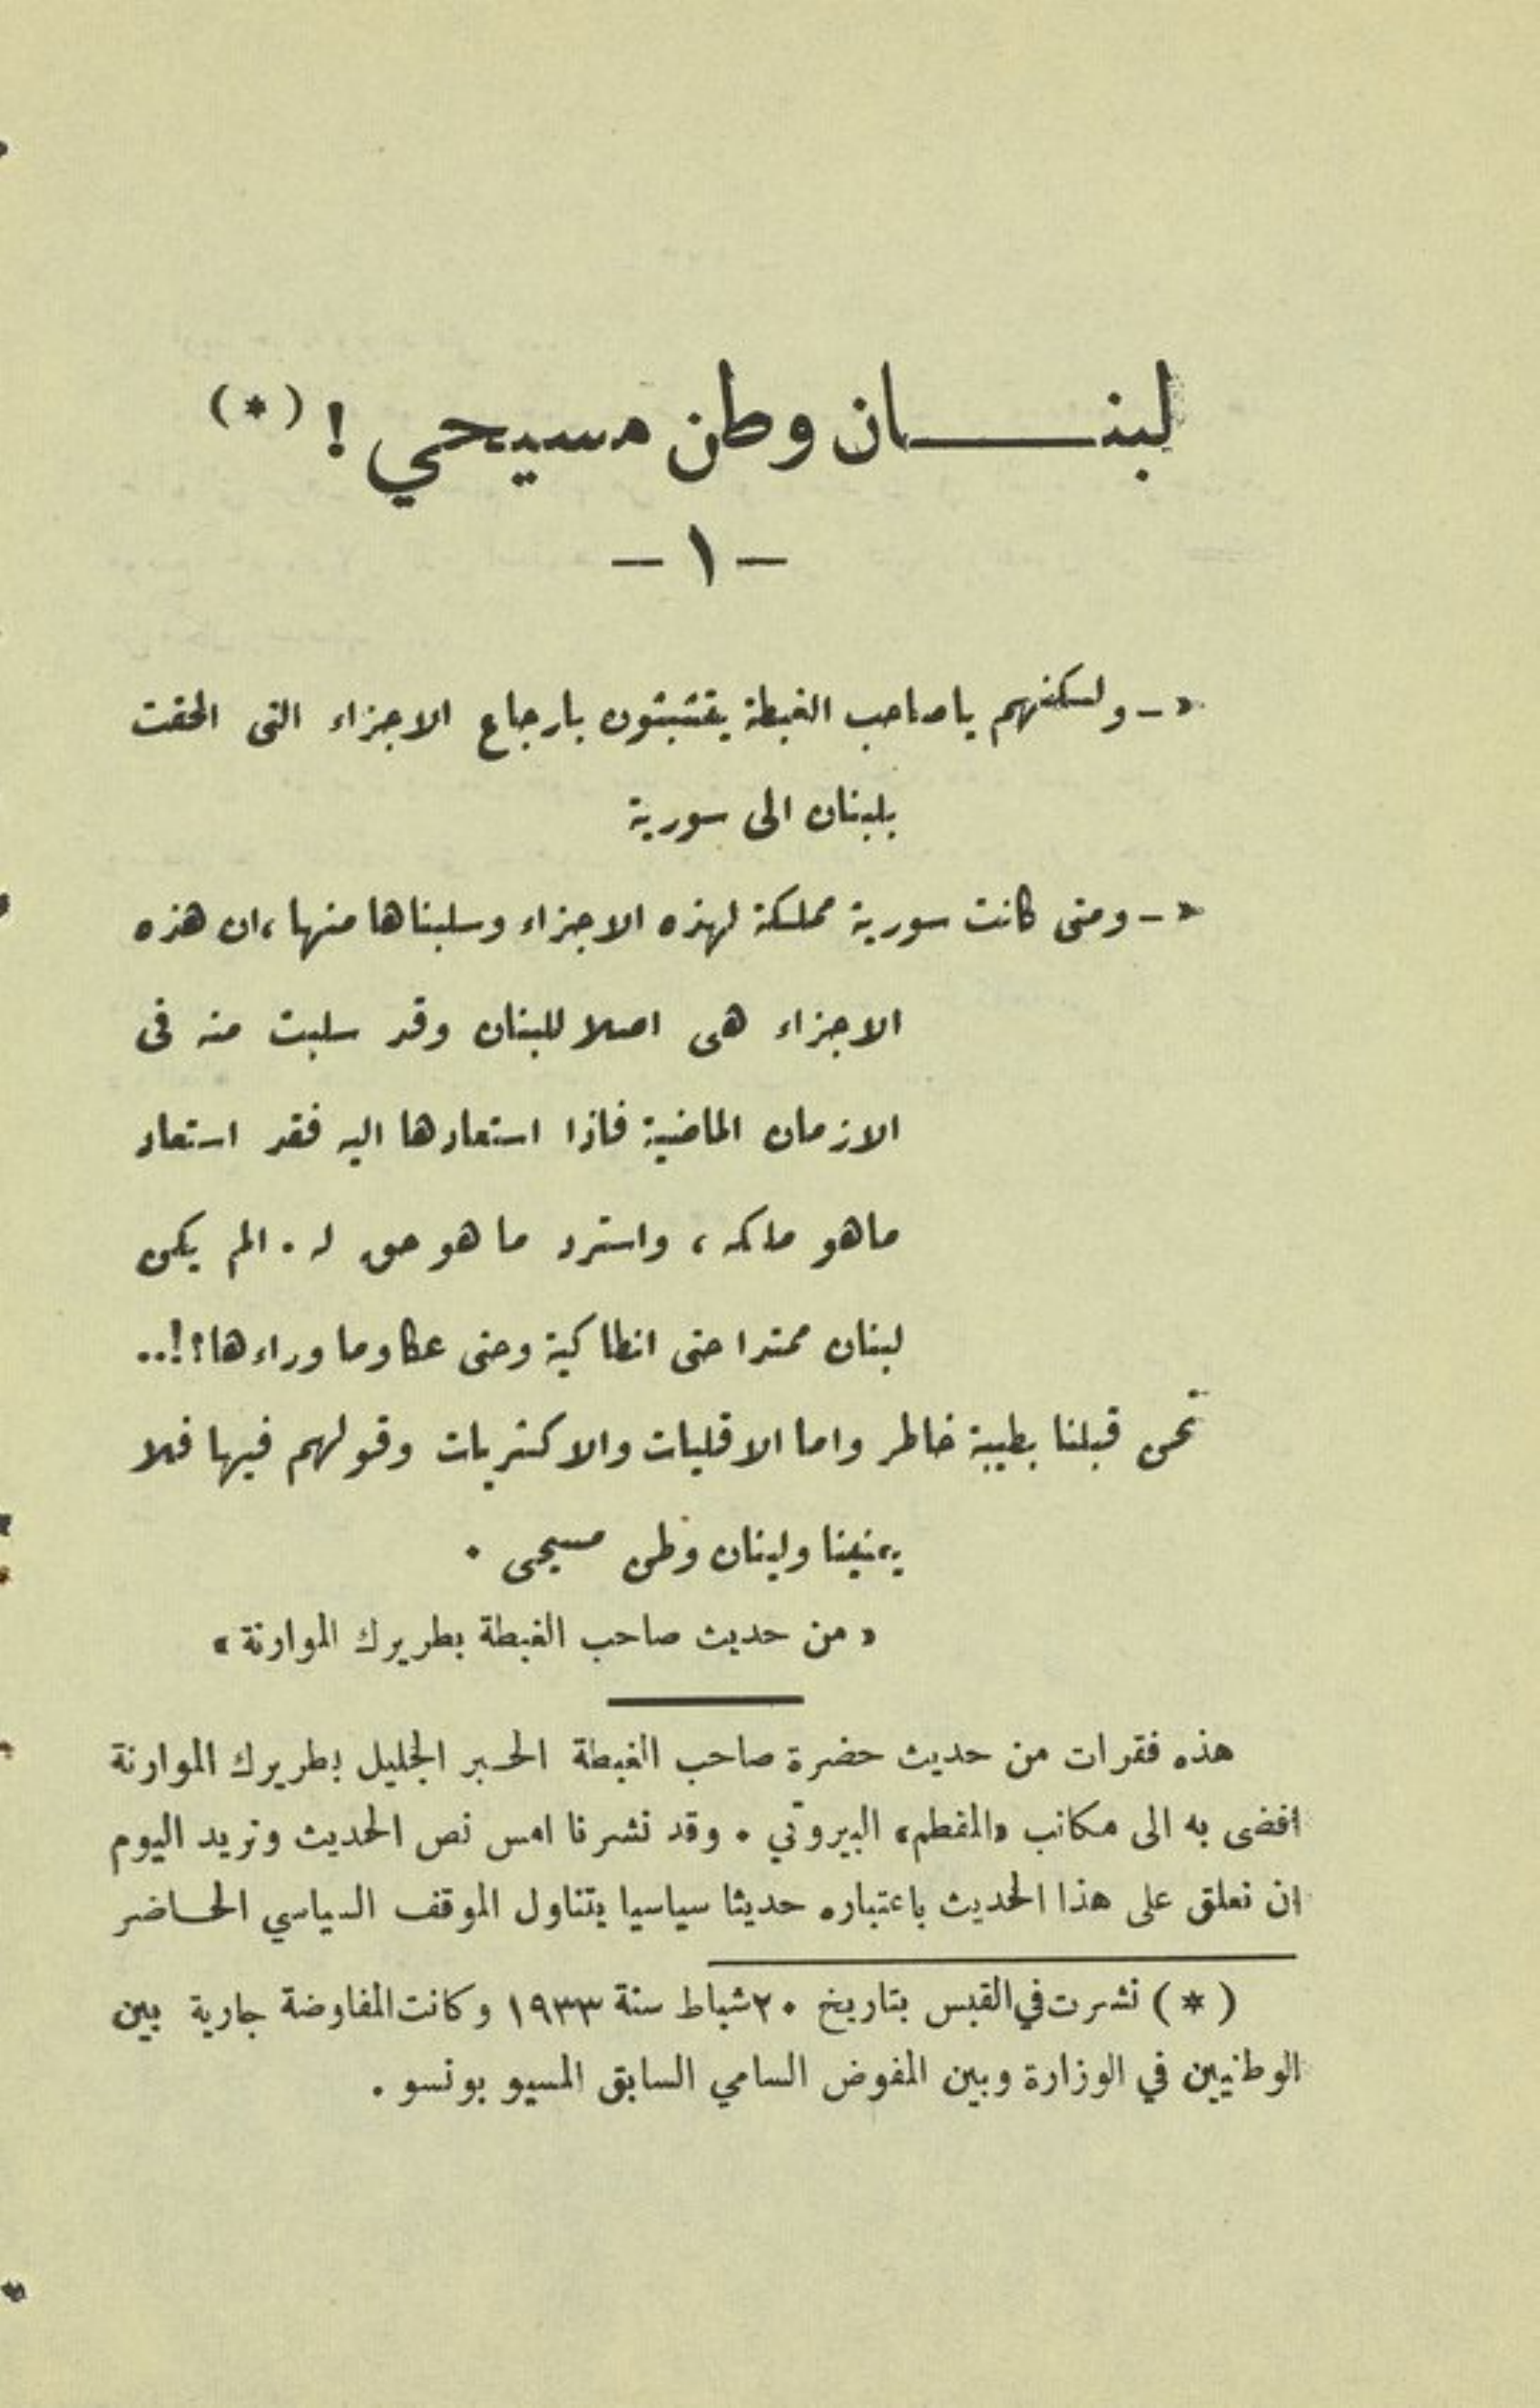 لبنـــان وطن مسيحي ! (*)
— ١ —
« — ولكنهم ياصاحب الغبطة يتشبثون بارجاع الاجزاء التي الحقت
بلبنان الى سورية
« — ومتى كانت سورية مملكة لهذه الاجزاء وسلبناها منها ، ان هذه
الاجزاء هي اصلا للبنان وقد سلبت منه في
الازمان الماضية فاذا استعادها اليه فقد استعاد
ماهو ملكه ، واسترد ما هو حق له . الم يكن
لبنان ممتدا حتى انطاكية وحتى عكا وما وراءها ؟!..
نحن قبلنا بطيبة خاطر واما الاقليات والاكثريات وقولهم فيها فلا
يعنينا ولبنان وطن مسيحي .
« من حديث صاحب الغبطة بطريرك الموارنة »
هذه فقرات من حديث حضرة صاحب الغبطة الحبر الجليل بطريرك الموارنة
افضى به الى مكاتب «المقطم» البيروتي . وقد نشرنا امس نص الحديث ونريد اليوم
ان نعلق على هذا الحديث باعتباره حديثا سياسيا يتناول الموقف السياسي الحاضر
( * ) نشرت في القبس بتاريخ ٢٠ شباط سنة ١٩٣٣ وكانت المفاوضة جارية بين
الوطنيين في الوزارة وبين المفوض السامي السابق المسيو بونسو .